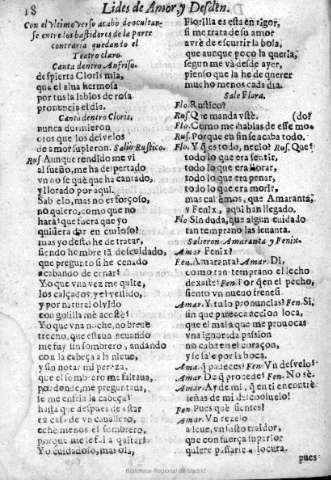 18 Lides de Amor, y Desden.
Con el vltimo verso acabò de ocultan-
se entre los bastidores de la parte
contraria quedando el
Teatro claro.
Canta dentro Anfriso.
despierta Cloris mia,
que el alua hermosa
por tus labios de rosa
pronuncia el dia.
Canta dentro Cloris.
nunca durmieron
ojos que los desvelos
de amor supieron. Sale Rustico.
Rus. Aunque rendido me vi
al sueño, me ha despertado
vn no se què que ha cantado,
y llorado por aqui.
Sabelo, mas no es forçoso,
no quiero, como que no
harà? que fuera que yo
quisiera dar en curioso?
mas yo desto he de tratar,
siendo hombre tã descuidado,
que pregunto si he cenado
acabando de cenar?
Yo que vna vez me quite,
los calçados, y el vestido,
y por natural olvido
con golilla me acostè?
Yo que vna noche, no breue
trecho, que estaua neuando
me fuy sin sombrero, andando
con la cabeça a la nieue,
y sin notar mi pereza,
que el sombrero me faltaua,
por donde, me preguntaua,
se me enfria la cabeça?
hasta que despues de estar
en casa de vn cauallero,
echè menos el sombrero,
porque me le fui a quitar?
Yo cuidadoso, mas ola,
Florilla es esta en rigor,
si me trata de su amor
avrè de escurrir la bola,
que aunque poco la querìa,
segun me và desde ayer,
pienso que la he de querer
mucho menos cada dia.
Sale Flora.
Flo. Rustico?
Rus. Que manda vstè. (do?
Flo. Como me hablas de esse mo-
Rus. Porque en fin se acaba todo.
Flo. Y q̃ es todo, necio? Rus. Que?
todo lo que era sentir,
todo lo que era llorar,
todo lo que era penar,
todo lo que era morir,
mas callemos, que Amaranta,
y Fenix, aqui han llegado.
Flo. Sin duda, que algun cuidado
tan temprano las leuanta.
Salieron Amaranta y Fenix.
Amar Fenix?
Fen. Amaranta? Amar. Di,
como tan temprano el lecho
dexaste? Fen. Por q̃ en el pecho,
siento vn nueuo frenesi.
Amar. Y tu lo pronuncias? Fen. Si,
sin que parezca accion loca,
que el mal a que me prouoca
vna ignorada passion
no cabe en el coraçon,
y se sale por la boca.
Ama. q̃ padeces? Fen. Vn desvelo?
Ama. De q̃ procede? Fen. No sè.
Amar. Ay de mi, q̃ en ti encontrè
señas de mi desconsuelo!
Fen. Pues què sientes?
Amar. Vn rezelo
aleue, vn fausto traidor,
que con fuerça superior
quiere passarse a locura,
pues
Biblioteca Regional de Madrid